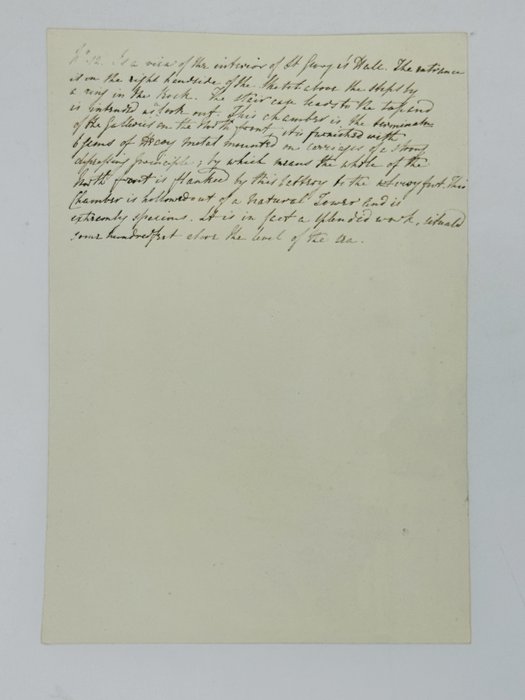 Is a view of the interior of St George's Hall. The entrance
is on the right handside of the Sketch above the steps by
a ring in the Rock. The stair case leads to the top and
is intended as look out. This chamber is the terminate
of the Galleries on the North front, it is furnished with
6 guns of Heavy metal mounted on carriages of a strong
depressing principle; by which means the whole of the
North front is flanked by this battery to the
Chamber is hollowed out of a natural Tower and is
extremely spacious. It is in fact a splendid work, situated
some hundred feet above the level of the sea.